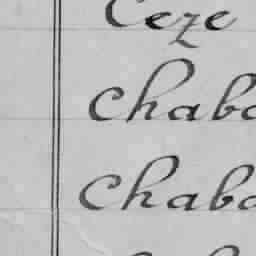 Ceze
Chabo
Chabo